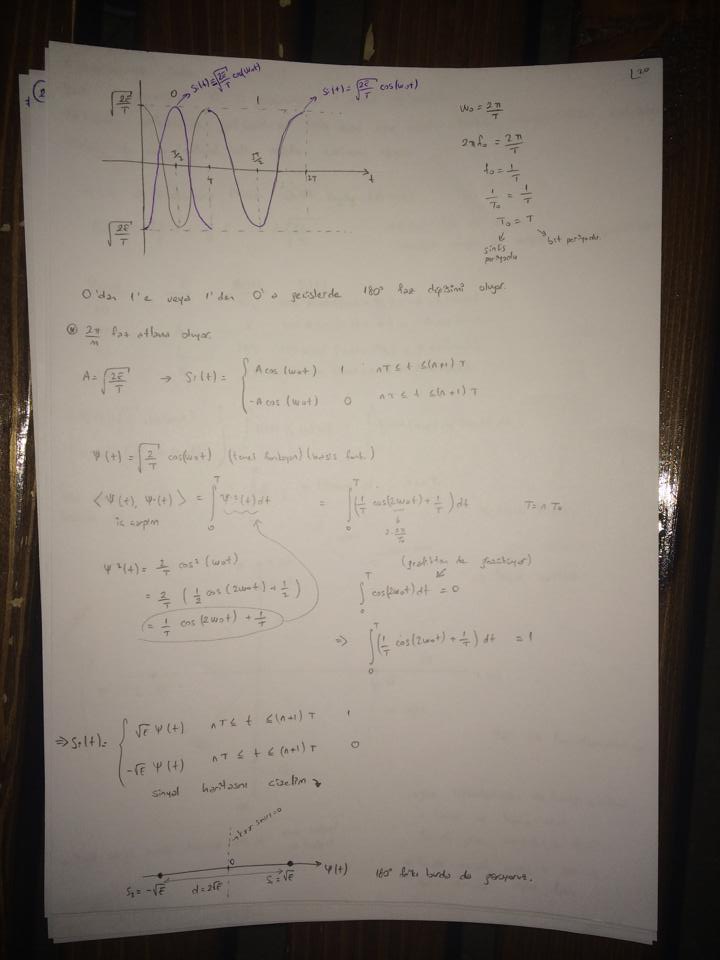 S₁(t) = √(2E/T) cos(w₀t)
0
1
S₁(t) = √(2E/T) cos(w₀t)
√(2E/T)
T/2
T
2T
t
√(2E/T)
w₀ = 2π/T
2πf₀ = 2π/T
f₀ = 1/T
1/T₀ = 1/T
T₀ = T
sinüs periyodu
bit periyodu
0'dan 1'e veya 1'den 0'a geçişlerde 180° faz değişimi oluyor.
⊛ 2π/M faz atlama oluyor.
A = √(2E/T) → Sᵢ(t) = { A cos(w₀t) 1 nT ≤ t ≤ (n+1)T
-A cos(w₀t) 0 nT ≤ t ≤ (n+1)T
Ψ(t) = √(2/T) cos(w₀t) (temel fonksiyon) (basis fonk.)
⟨Ψ(t), Ψ(t)⟩ = ∫₀ᵀ Ψ²(t)dt = ∫₀ᵀ (1/T cos(2w₀t) + 1/T) dt T = nT₀
iç çarpım
2·2π/T₀
Ψ²(t) = 2/T cos²(w₀t)
= 2/T (1/2 cos(2w₀t) + 1/2)
= 1/T cos(2w₀t) + 1/T
(grafikten de gözüküyor)
∫₀ᵀ cos(2w₀t)dt = 0
⇒ ∫₀ᵀ (1/T cos(2w₀t) + 1/T) dt = 1
⇒ Sᵢ(t) = { √E Ψ(t) nT ≤ t ≤ (n+1)T 1
-√E Ψ(t) nT ≤ t ≤ (n+1)T 0
sinyal haritasını çizelim
0
Ψ(t)
S₂ = -√E
d = 2√E
S₁ = √E
180° farkı burda da görüyoruz.